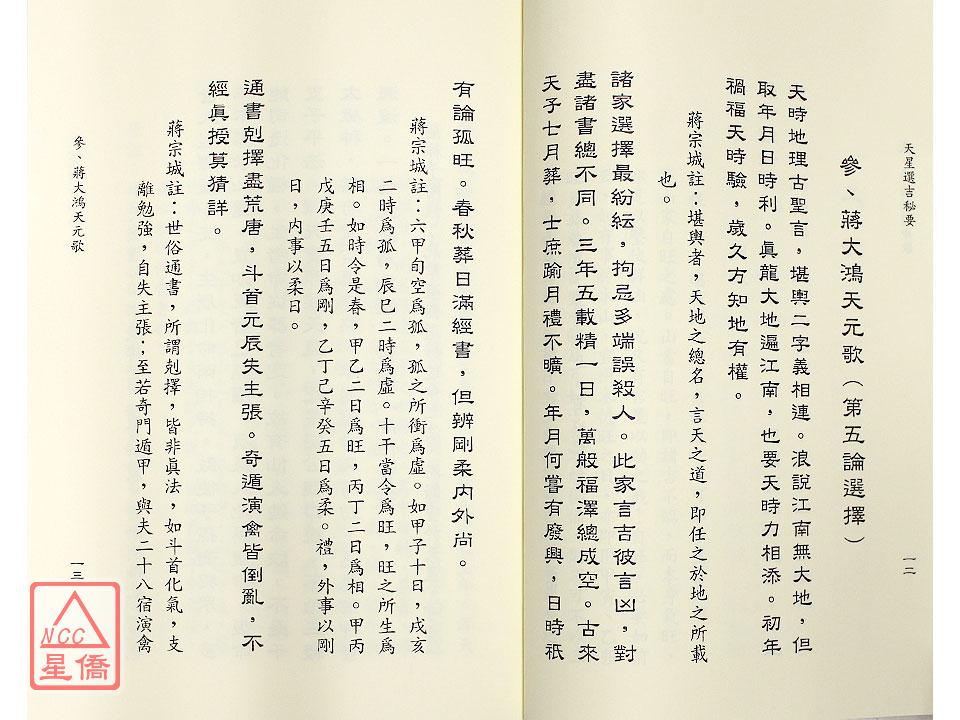 天星選吉秘要
一二
參、蔣大鴻天元歌（第五論選擇）
天時地理古聖言，堪輿二字義相連。浪說江南無大地，但
取年月日時利。眞龍大地遍江南，也要天時力相添。初年
禍福天時驗，歲久方知地有權。
蔣宗城註：堪輿者，天地之總名，言天之道，即任之於地之所載
也。
諸家選擇最紛紜，拘忌多端誤殺人。此家言吉彼言凶，對
盡諸書總不同。三年五載精一日，萬般福澤總成空。古來
天子七月葬，士庶踰月禮不曠。年月何嘗有廢興，日時衹
有論孤旺。春秋葬日滿經書，但辨剛柔內外尚。
蔣宗城註：六甲旬空爲孤，孤之所衝爲虛。如甲子十日，戌亥
二時爲孤，辰巳二時爲虛。十干當令爲旺，旺之所生爲
相。如時令是春，甲乙二日爲旺，丙丁二日爲相。甲丙
戊庚壬五日爲剛，乙丁己辛癸五日爲柔。禮，外事以剛
日，內事以柔日。
通書剋擇盡荒唐，斗首元辰失主張。奇遁演禽皆倒亂，不
經眞授莫猜詳。
蔣宗城註：世俗通書，所謂剋擇，皆非眞法，如斗首化氣，支
離勉強，自失主張；至若奇門遁甲，與夫二十八宿演禽
參、蔣大鴻天元歌
一三
NCC
星僑